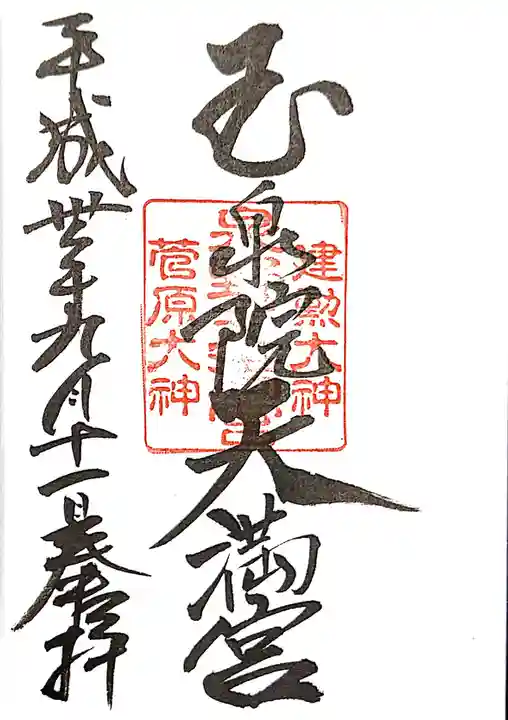 建勲大神
玉泉院天満宮
菅原大神
平成卅年九月十一日奉拝